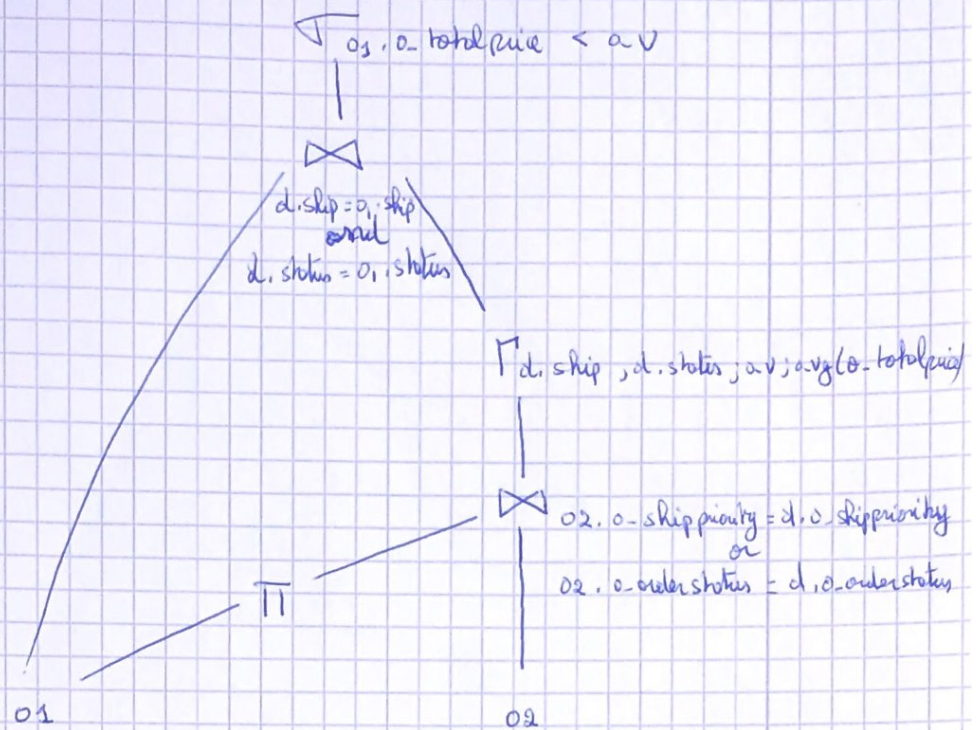 σ o1.o_totalprice < av
⋈
d.ship = o1.ship
and
d.status = o1.status
Γ d.ship, d.status; av; avg(o_totalprice)
⋈ o2.o_shippriority = d.o_shippriority
or
o2.o_orderstatus = d.o_orderstatus
Π
o1
o2